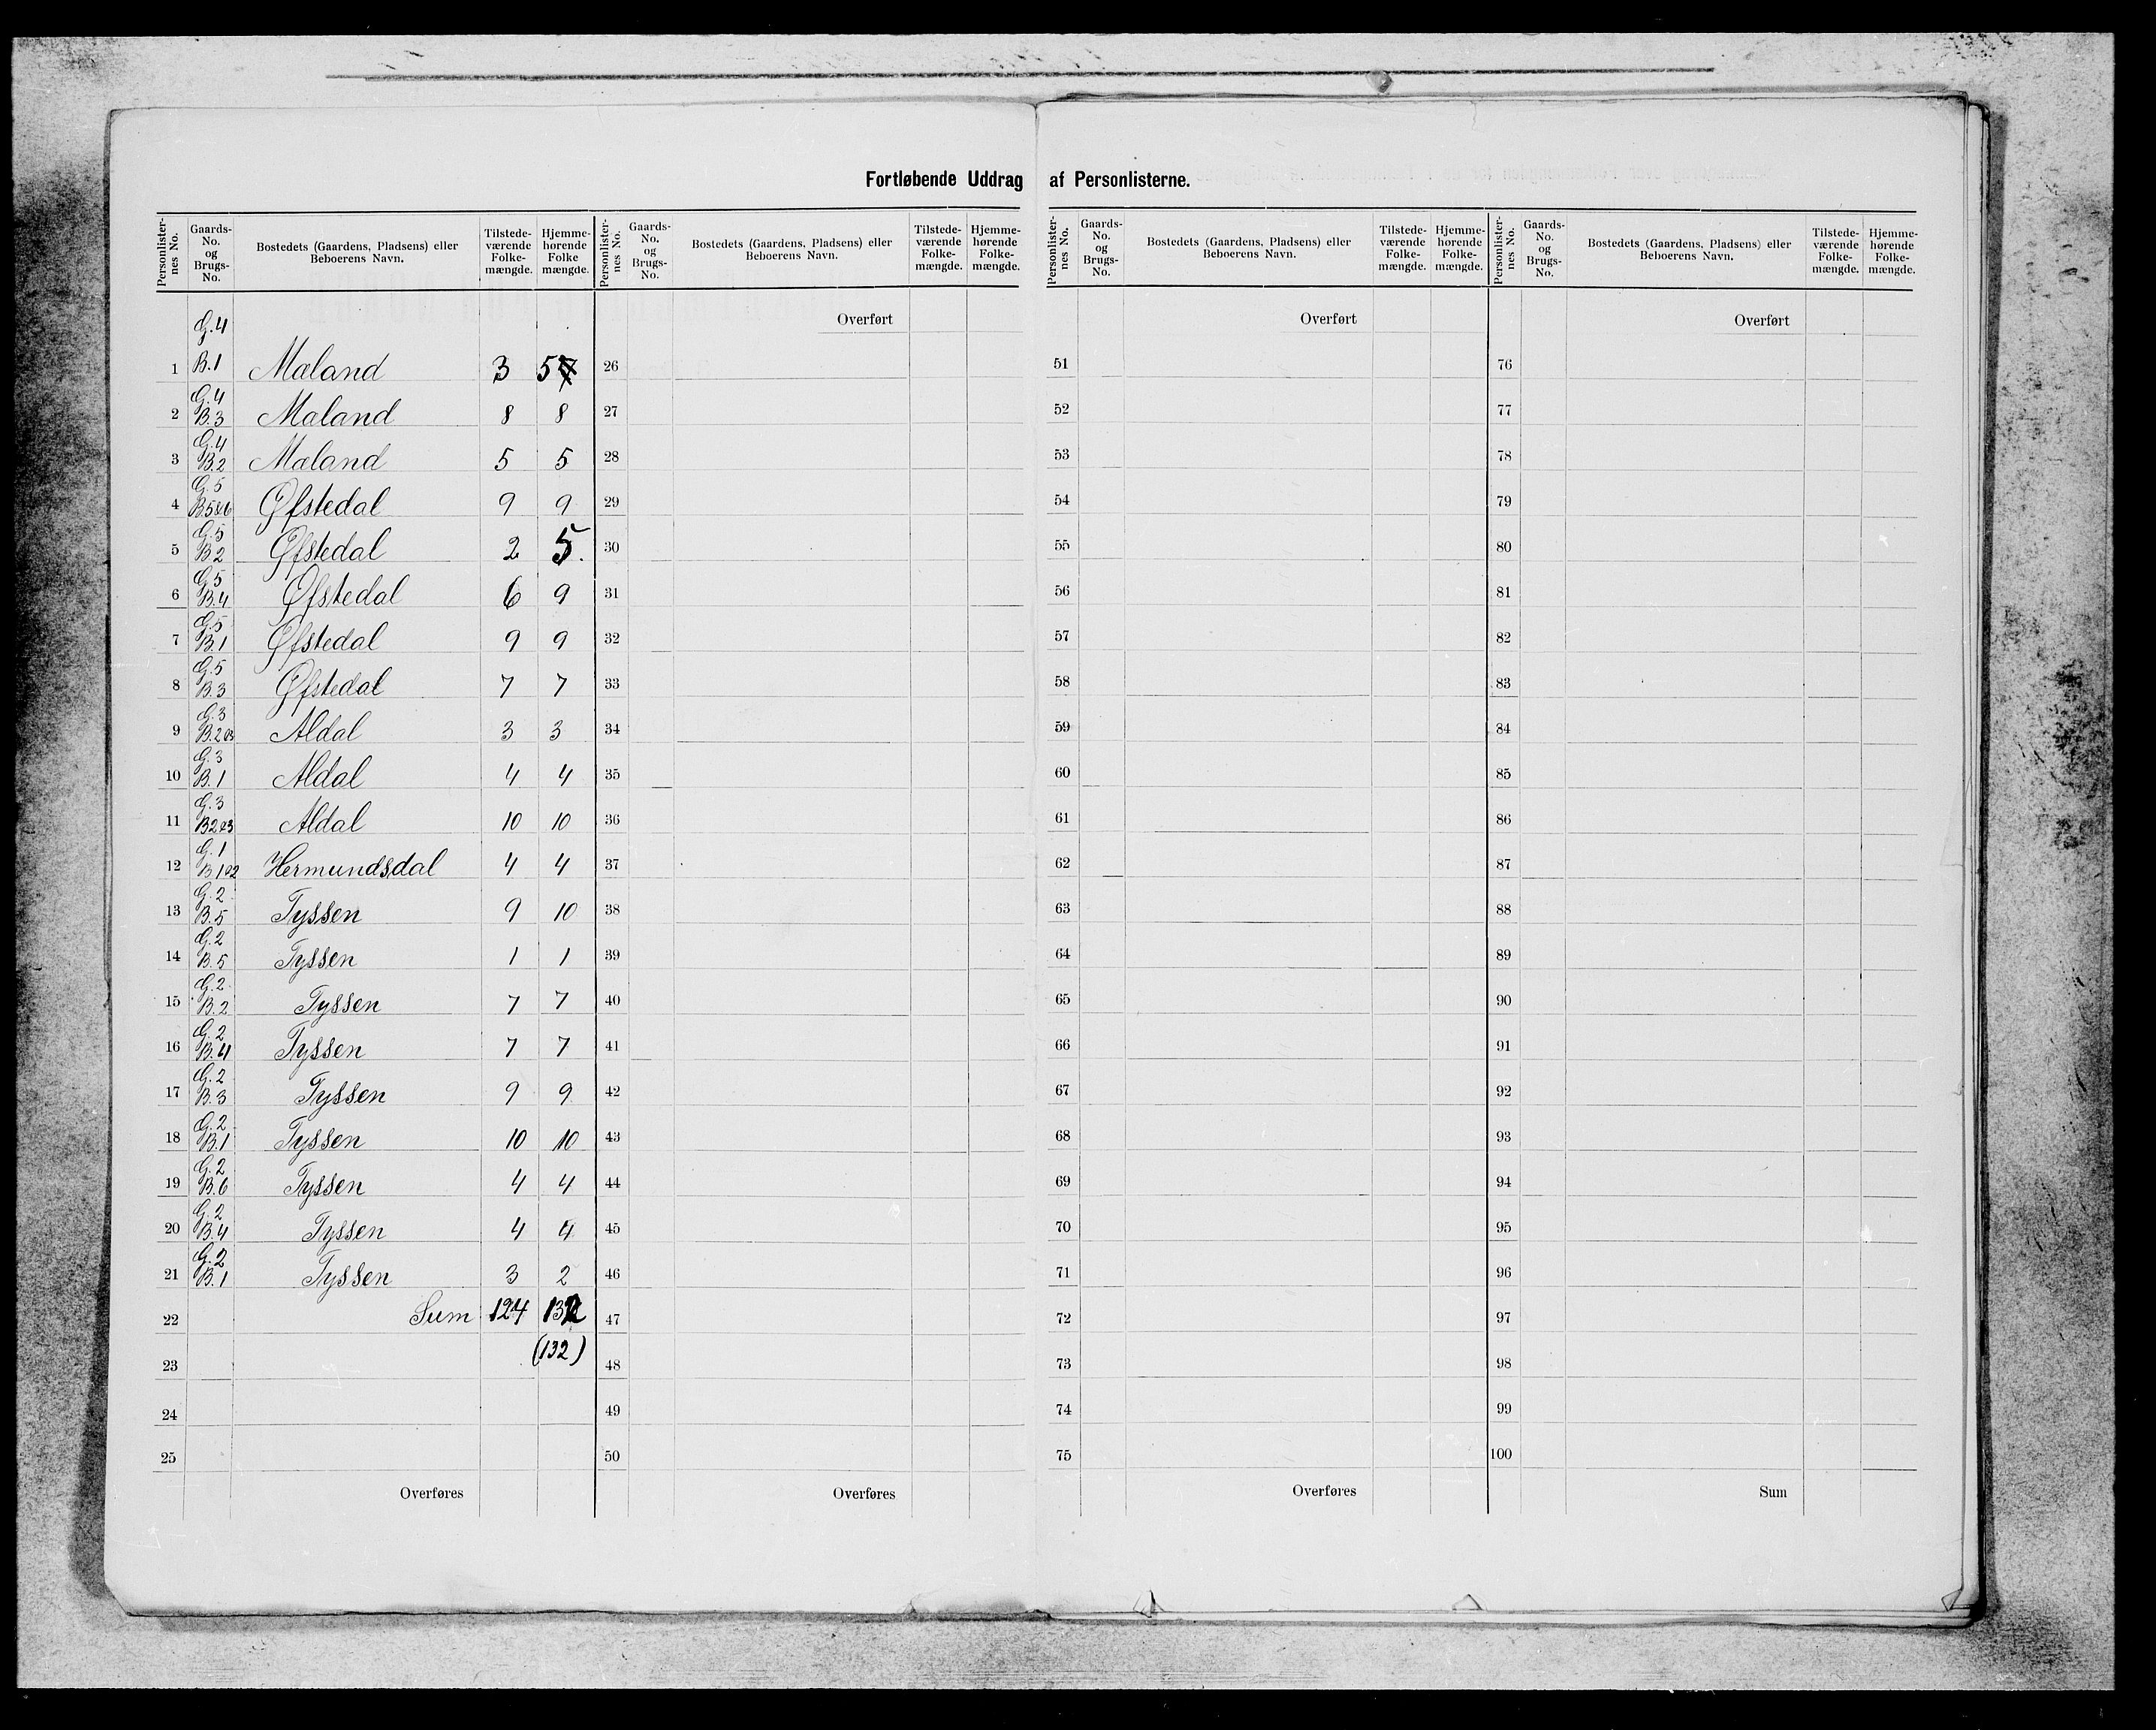 Fortløbende Uddrag af Personlisterne.
Personlister-nes No. Gaards-No. og Brugs-No. Bostedets (Gaardens, Pladsens) eller Beboerens Navn. Tilstede-værende Folke-mængde. Hjemme-hørende Folke mængde.
Personlister-nes No. Gaards-No. og Brugs-No. Bostedets (Gaardens, Pladsens) eller Beboerens Navn. Tilstede-værende Folke-mængde. Hjemme-hørende Folke-mængde.
Personlister-nes No. Gaards-No. og Brugs-No. Bostedets (Gaardens, Pladsens) eller Beboerens Navn. Tilstede-værende Folke-mængde. Hjemme-hørende Folke-mængde.
Personlister-nes No. Gaards-No. og Brugs-No. Bostedets (Gaardens, Pladsens) eller Beboerens Navn. Tilstede-værende Folke-mængde. Hjemme-hørende Folke-mængde.
Overført Overført Overført
1 G.4 B.1 Mæland 3 5 26 51 76
2 G.4 B.3 Mæland 8 8 27 52 77
3 G.4 B.2 Mæland 5 5 28 53 78
4 G.5 B5&6 Øfstedal 9 9 29 54 79
5 G.5 B2 Øfstedal 2 5. 30 55 80
6 G.5 B.4 Øfstedal 6 9 31 56 81
7 G.5 B.1 Øfstedal 9 9 32 57 82
8 G.5 B.3 Øfstedal 7 7 33 58 83
9 G.3 B.2&3 Aldal 3 3 34 59 84
10 G.3 B.1 Aldal 4 4 35 60 85
11 G.3 B2&3 Aldal 10 10 36 61 86
12 G.1 B1&2 Hermundsdal 4 4 37 62 87
13 G.2 B.5 Tyssen 9 10 38 63 88
14 G.2 B.5 Tyssen 1 1 39 64 89
15 G.2 B.2 Tyssen 7 7 40 65 90
16 G.2 B.4 Tyssen 7 7 41 66 91
17 G.2 B.3 Tyssen 9 9 42 67 92
18 G.2 B.1 Tyssen 10 10 43 68 93
19 G.2 B.6 Tyssen 4 4 44 69 94
20 G.2 B.4 Tyssen 4 4 45 70 95
21 G.2 B.1 Tyssen 3 2 46 71 96
22 Sum 124 132 47 72 97
23 (132) 48 73 98
24 49 74 99
25 50 75 100
Overføres Overføres Overføres Sum